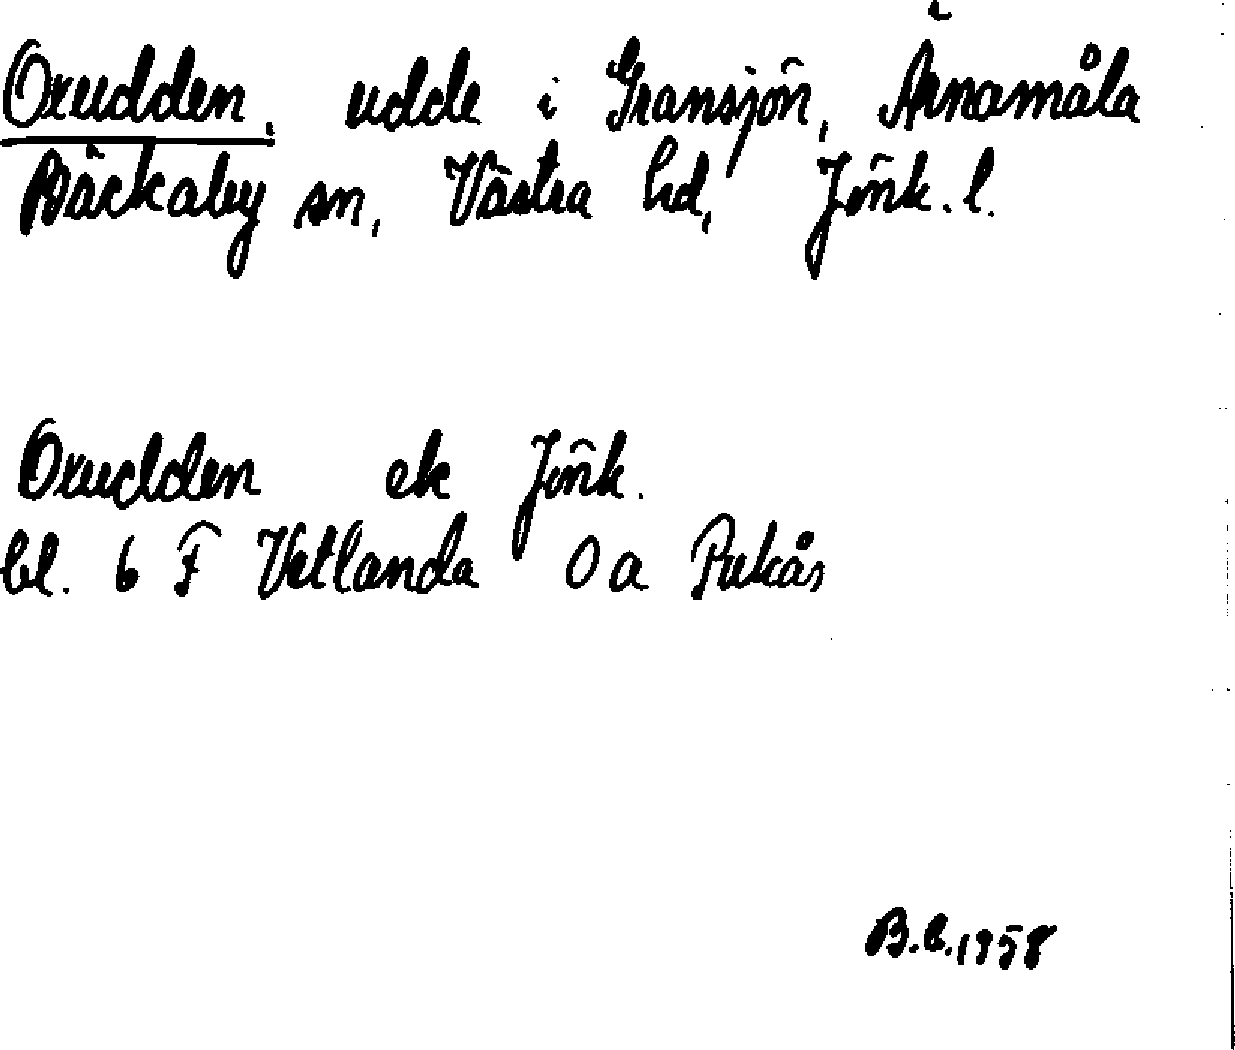 Oxudden, udde i Gransjön, Ärnamåla
Bäckaby sn, Västra hd, Jönk. l.
Oxudden ek Jönk.
bl. 6 F Vetlanda 0 a Pukås
B.E. 1958